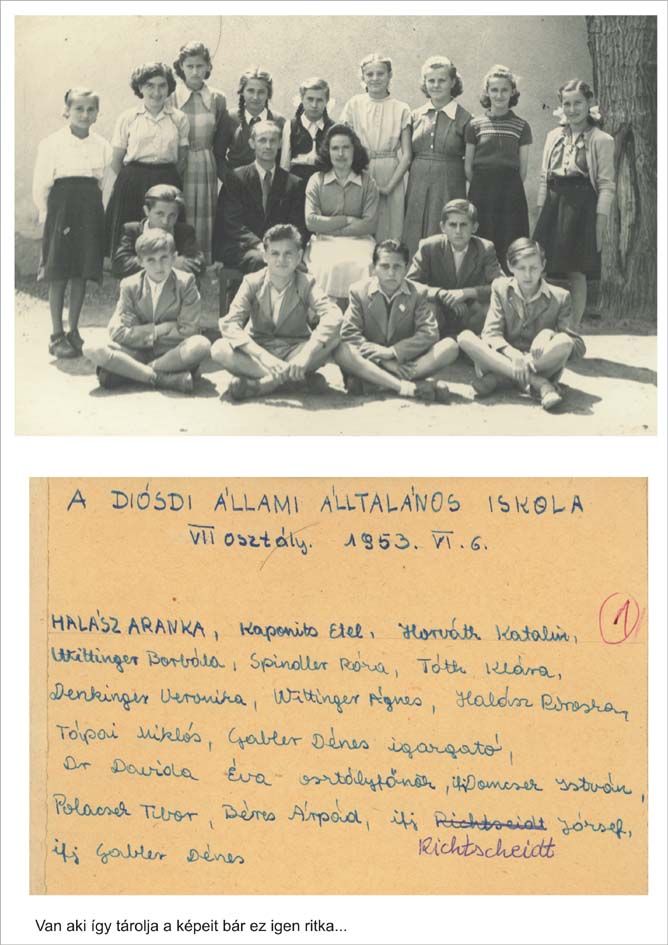 A DIÓSDI ÁLLAMI ÁLLTALÁNOS ISKOLA
VII osztály. 1953. VI. 6.
1
HALÁSZ ARANKA, Kaponits Etel, Horváth Katalin,
Wittinger Borbála, Spindler Róza, Tóth Klára,
Denkinger Veronika, Wittinger Ágnes, Halász Piroska,
Tájpai Miklós, Gabler Dénes igazgató,
Dr Davida Éva osztályfőnök, ifj Domcsek István,
Polacsek Tibor, Béres Árpád, ifj Richtseidt József,
Richtscheidt
ifj Gabler Dénes
Van aki így tárolja a képeit bár ez igen ritka...